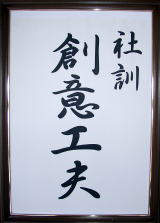 社訓
創意工夫